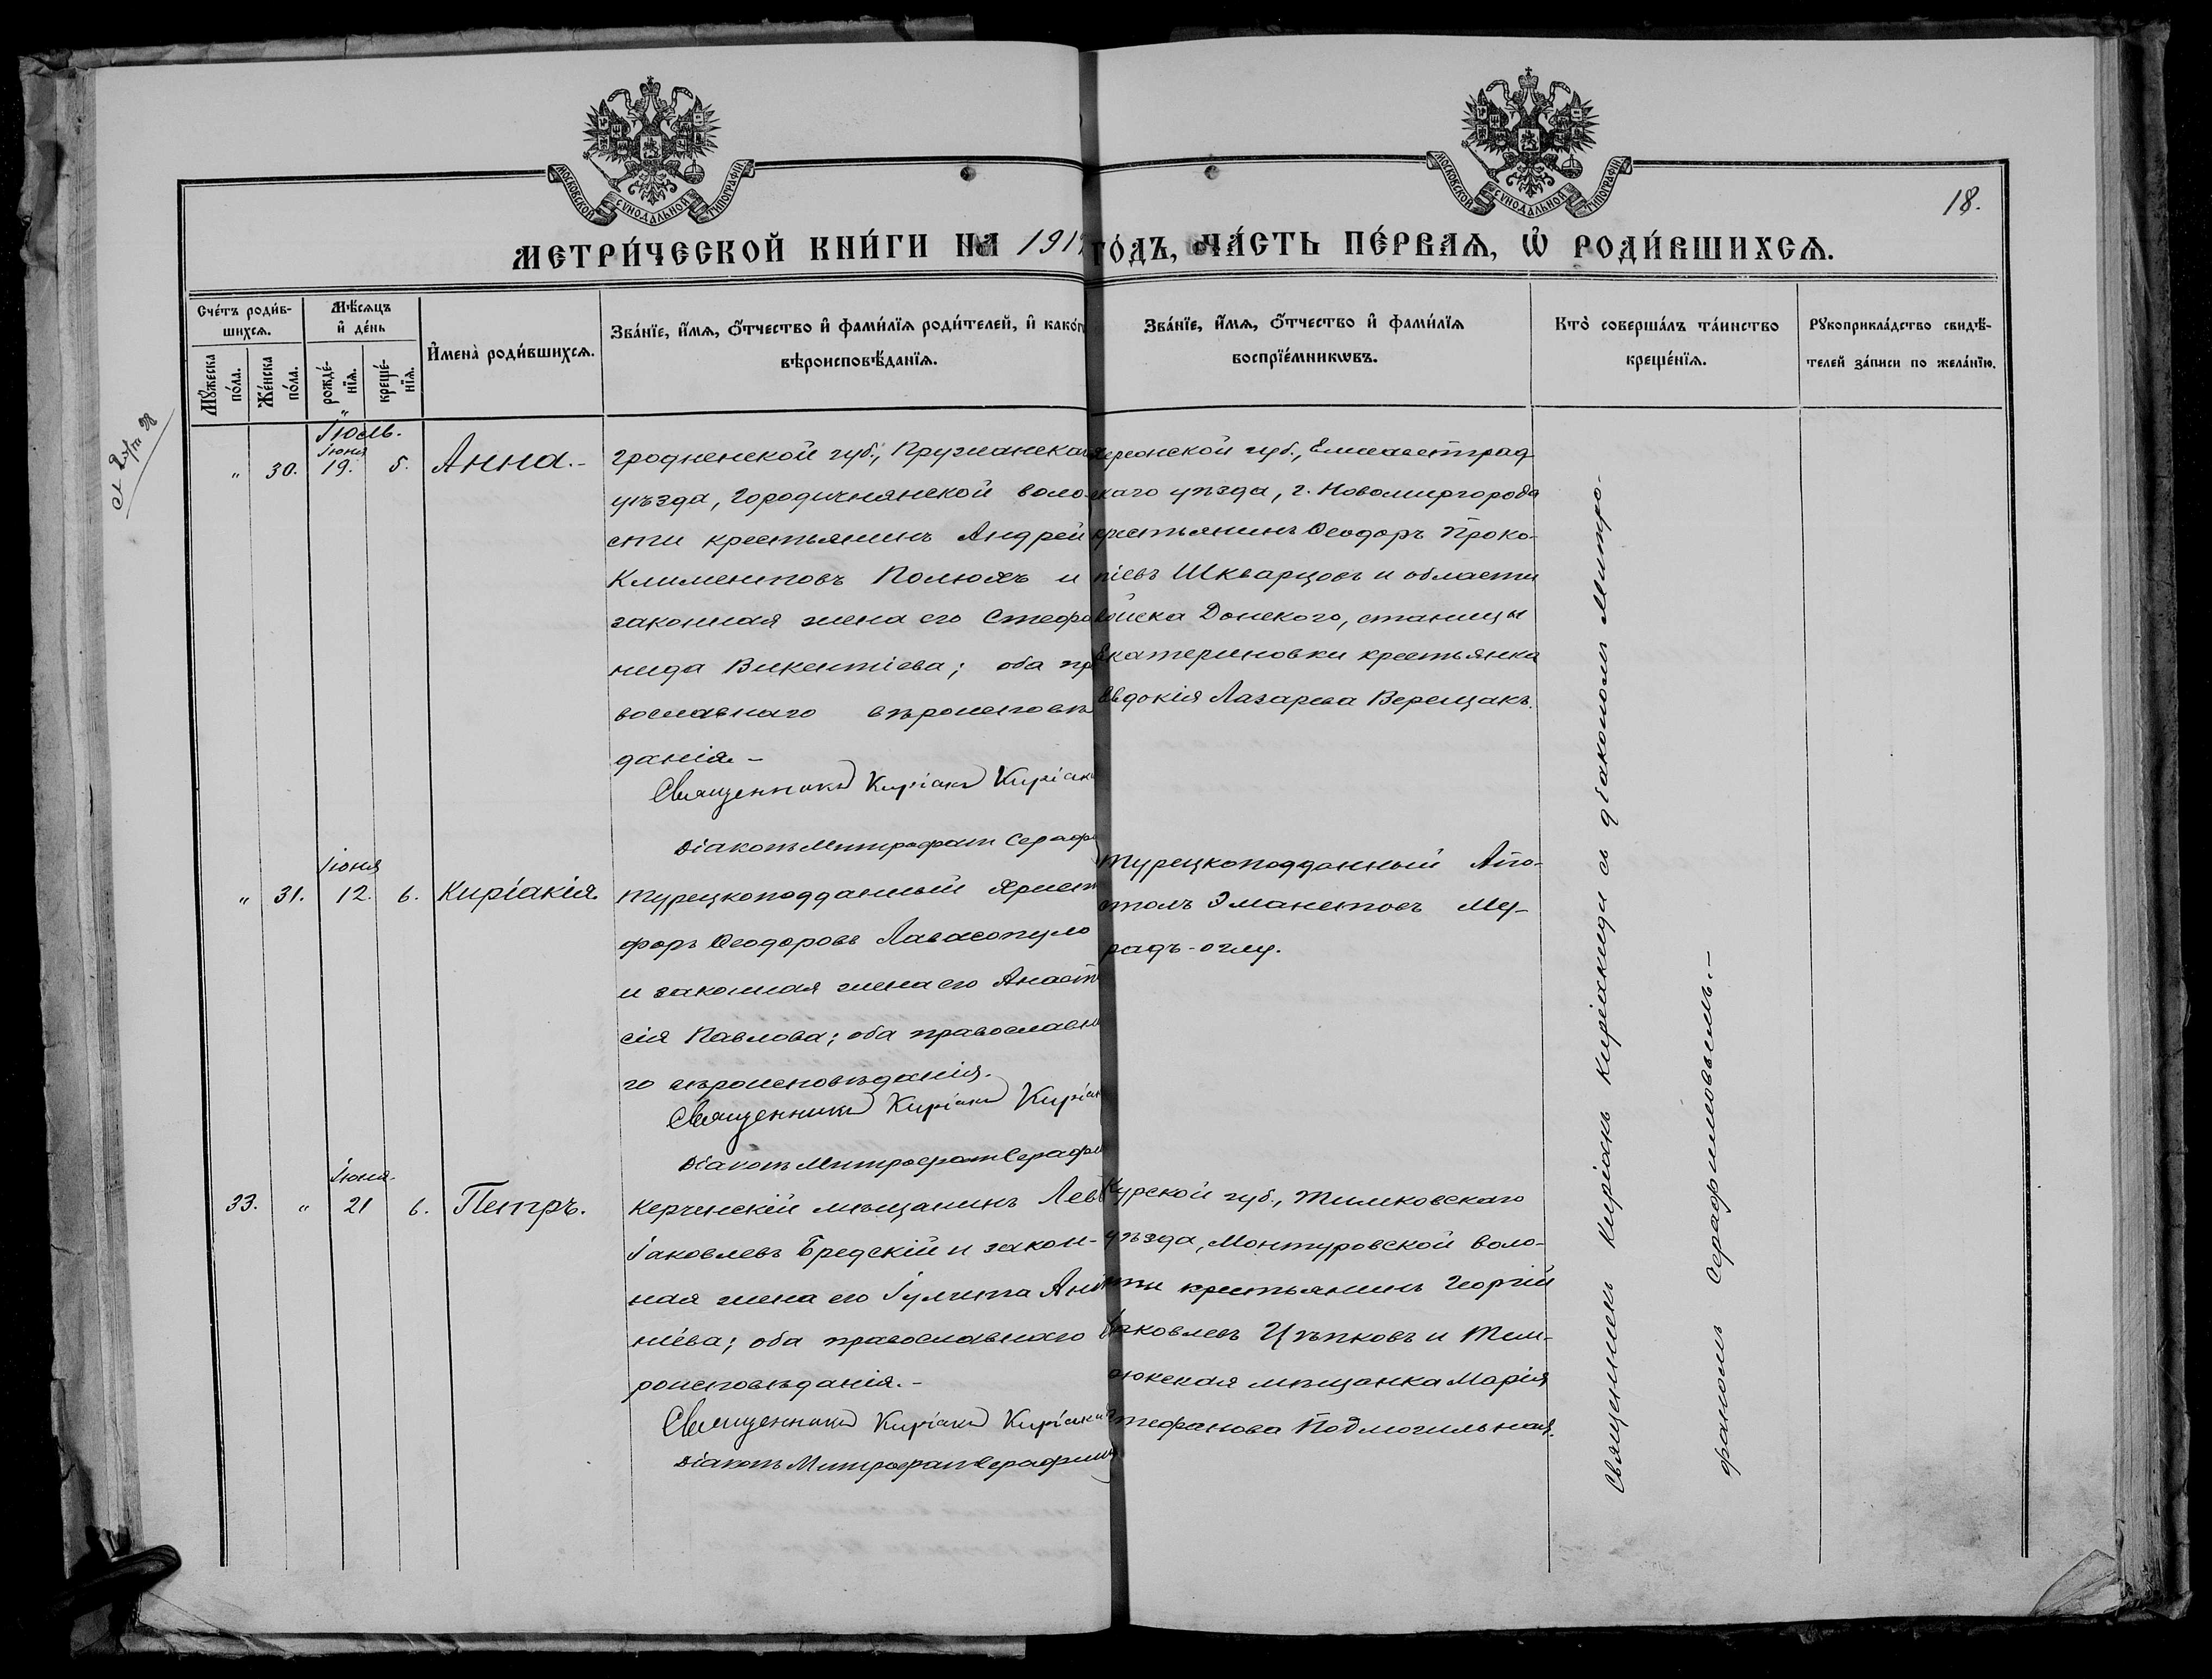 МОСКОВСКОЙ СѴНОДАЛЬНОЙ ТИПОГРАФІИ
МОСКОВСКОЙ СѴНОДАЛЬНОЙ ТИПОГРАФІИ
18.
МЕТРИ́ЧЕСКОЙ КНИ́ГИ НА 191
ГО́ДЪ, ЧА́СТЬ ПЕ́РВАѦ, Ѡ҆ РОДИ́ВШИХСѦ.
Сче́тъ роди́в-
шихсѧ.
Мꙋ́жеска
по́ла.
Же́нска
по́ла.
Мѣ́сѧцъ
и҆ де́нь
рожде́-
нїѧ.
креще́-
нїѧ.
И҆мена̀ роди́вшихсѧ.
Зва́нїе, и҆́мѧ, ѻ҆́тчество и҆ фами́лїѧ роди́телей, и҆ како́г
вѣроисповѣ́данїѧ.
Зва́нїе, и҆́мѧ, ѻ҆́тчество и҆ фами́лїѧ
воспрїе́мникѡвъ.
Кто̀ соверша́лъ та́инство
креще́нїѧ.
Рꙋкоприкла́дство свидѣ́-
телей за́писи по жела́нїю.
Іюль.
Іюня
" 30. 19. 5. Анна.-
Гродненской губ., Пружанска
уѣзда, Городичнянской воло-
сти крестьянинъ Андрей
Климентовъ Полюхъ и
законная жена его Стефа
нида Викентіева; оба пр
вославнаго вѣроисповѣ
данія.-
Священникъ Киріакъ Киріак
Діаконъ Митрофанъ Сераф
Херсонской губ., Елисаветград
скаго уѣзда, г. Новомиргорода
крестьянинъ Ѳеодоръ Проко-
піевъ Шкварцовъ и области
войска Донского, станицы
Екатериновки крестьянка
Евдокія Лазарева Верещакъ.
Іюня
" 31. 12. 6. Киріакія.
Турецкоподданный Христ
форъ Ѳеодоровъ Лавасопуло
и законная жена его Анаст
сія Павлова; оба православн
го вѣроисповѣданія.
Священникъ Киріакъ Киріак
Діаконъ Митрофанъ Сераф
Турецкоподданный Апо-
столъ Эманетовъ Му-
радъ-оглу.
Іюня
33. " 21 6. Петръ.
Керченскій мѣщанинъ Лев
Іаковлевъ Бредскій и закон-
ная жена его Іулитта Ан
ніева; оба православнаго
роисповѣданія.-
Священникъ Киріакъ Киріаки
Діаконъ Митрофанъ Серафим
Курской губ., Тимковскаго
уѣзда, Монтуровской воло-
сти крестьянинъ Георгій
Іаковлевъ Цѣпковъ и Тем-
рюкская мѣщанка Марія
Стефанова Подмогильная.
Священникъ Киріакъ Киріакиди съ діакономъ Митро-
фаномъ Серафимовымъ.-